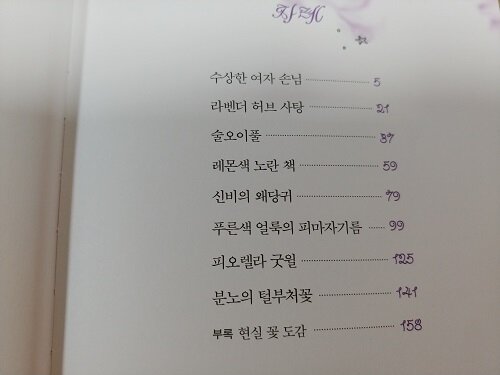 수상한 여자 손님 5
라벤더 허브 사탕 21
술오이풀 37
레몬색 노란 책 59
신비의 왜당귀 79
푸른색 얼룩의 피마자기름 99
피오렐라 굿윌 125
분노의 털부처꽃 141
부록 현실 꽃 도감 158